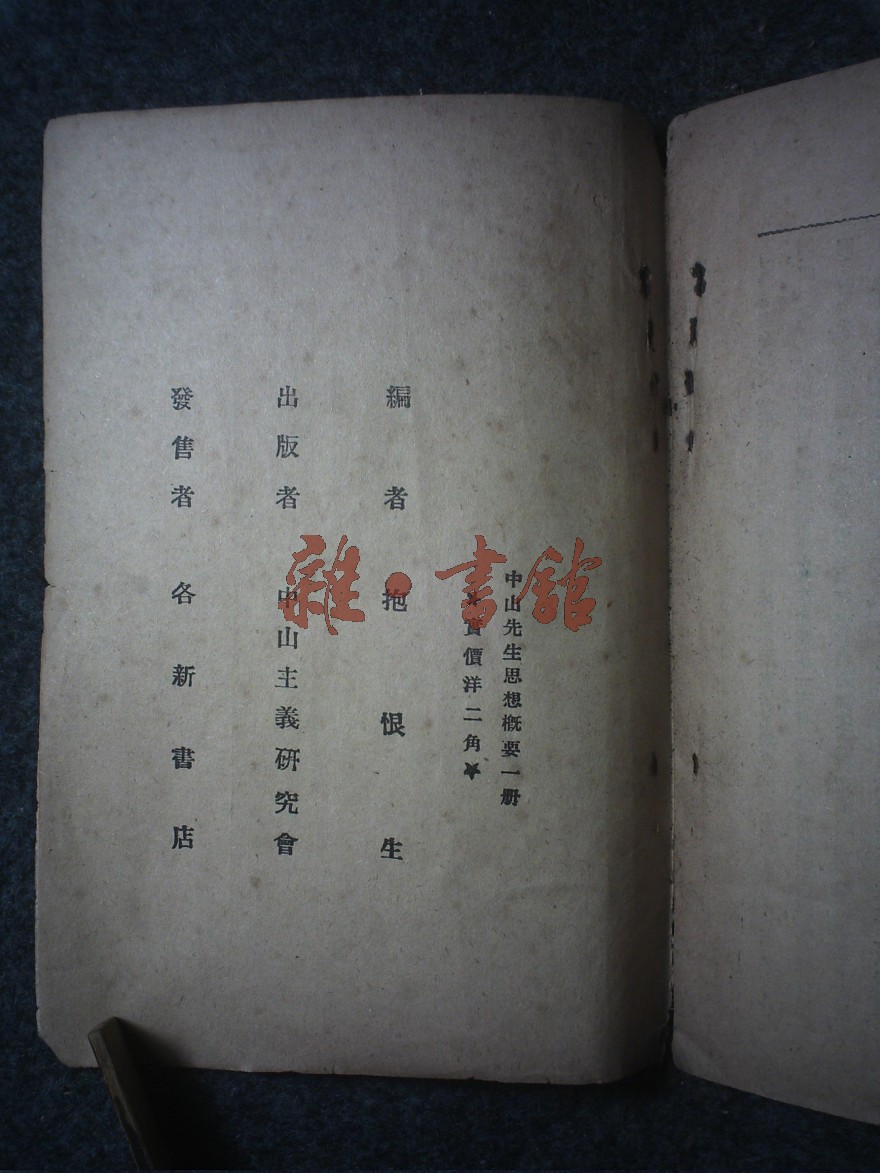 中山先生思想概要一册
★實價洋二角★
編者 抱恨生
出版者 中山主義研究會
發售者 各新書店
雜·書館